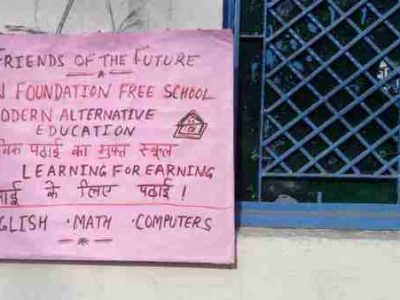 FRIENDS OF THE FUTURE
FOUNDATION FREE SCHOOL
MODERN ALTERNATIVE
EDUCATION
पढ़ाई का मुफ्त स्कूल
LEARNING FOR EARNING
के लिए पढ़ाई !
ENGLISH · MATH · COMPUTERS